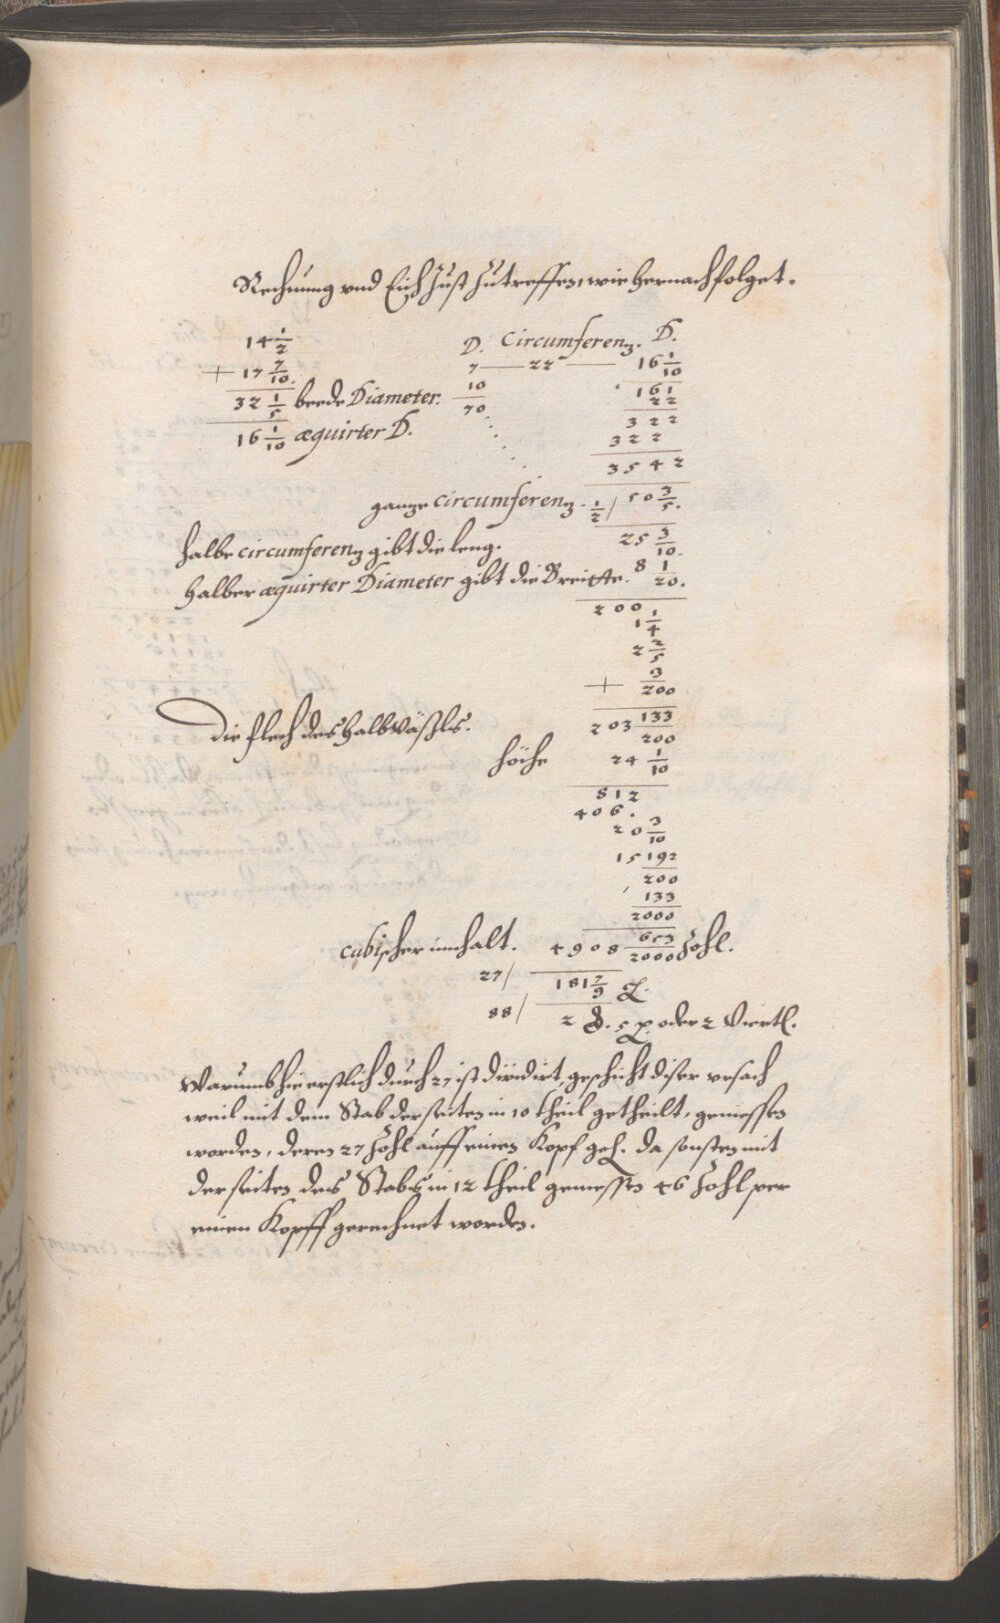 Rechnung vnd Eich Just zutreffen, wie hernach folget.
14 1/2
+ 17 7/10.
32 1/5 beede Diameter.
16 1/10 æquirter D.
D. Circumferenz. D.
7 — 22 — 16 1/10
10
70
161
22
322
322
3542
gantze circumferenz. 1/2 / 50 3/5.
25 3/10.
halbe circumferenz gibt die leng.
halber æquirter Diameter gibt die Breitte. 8 1/20.
200
1 1/4
2 2/5
+ 3/200
Die flech des halb Väßls. 203 133/200
höche 24 1/10
812
406.
20 3/10
15 192/200
133/2000
cubischer innhalt. 4908 653/2000 Zohl.
27/ 181 7/9
88/ 2 . 5 oder 2 Viertl.
Warumb hie erstlich durch 27 ist dividirt, geschicht diser vrsach
weil mit dem Stab der seiten in 10 theil getheilt, gemessen
worden, deren 27 Zohl auff einen Kopf geh. da sonsten mit
der seiten des Stabs in 12 theil gemessen 46 Zohl per
einen Kopff gerechnet worden.